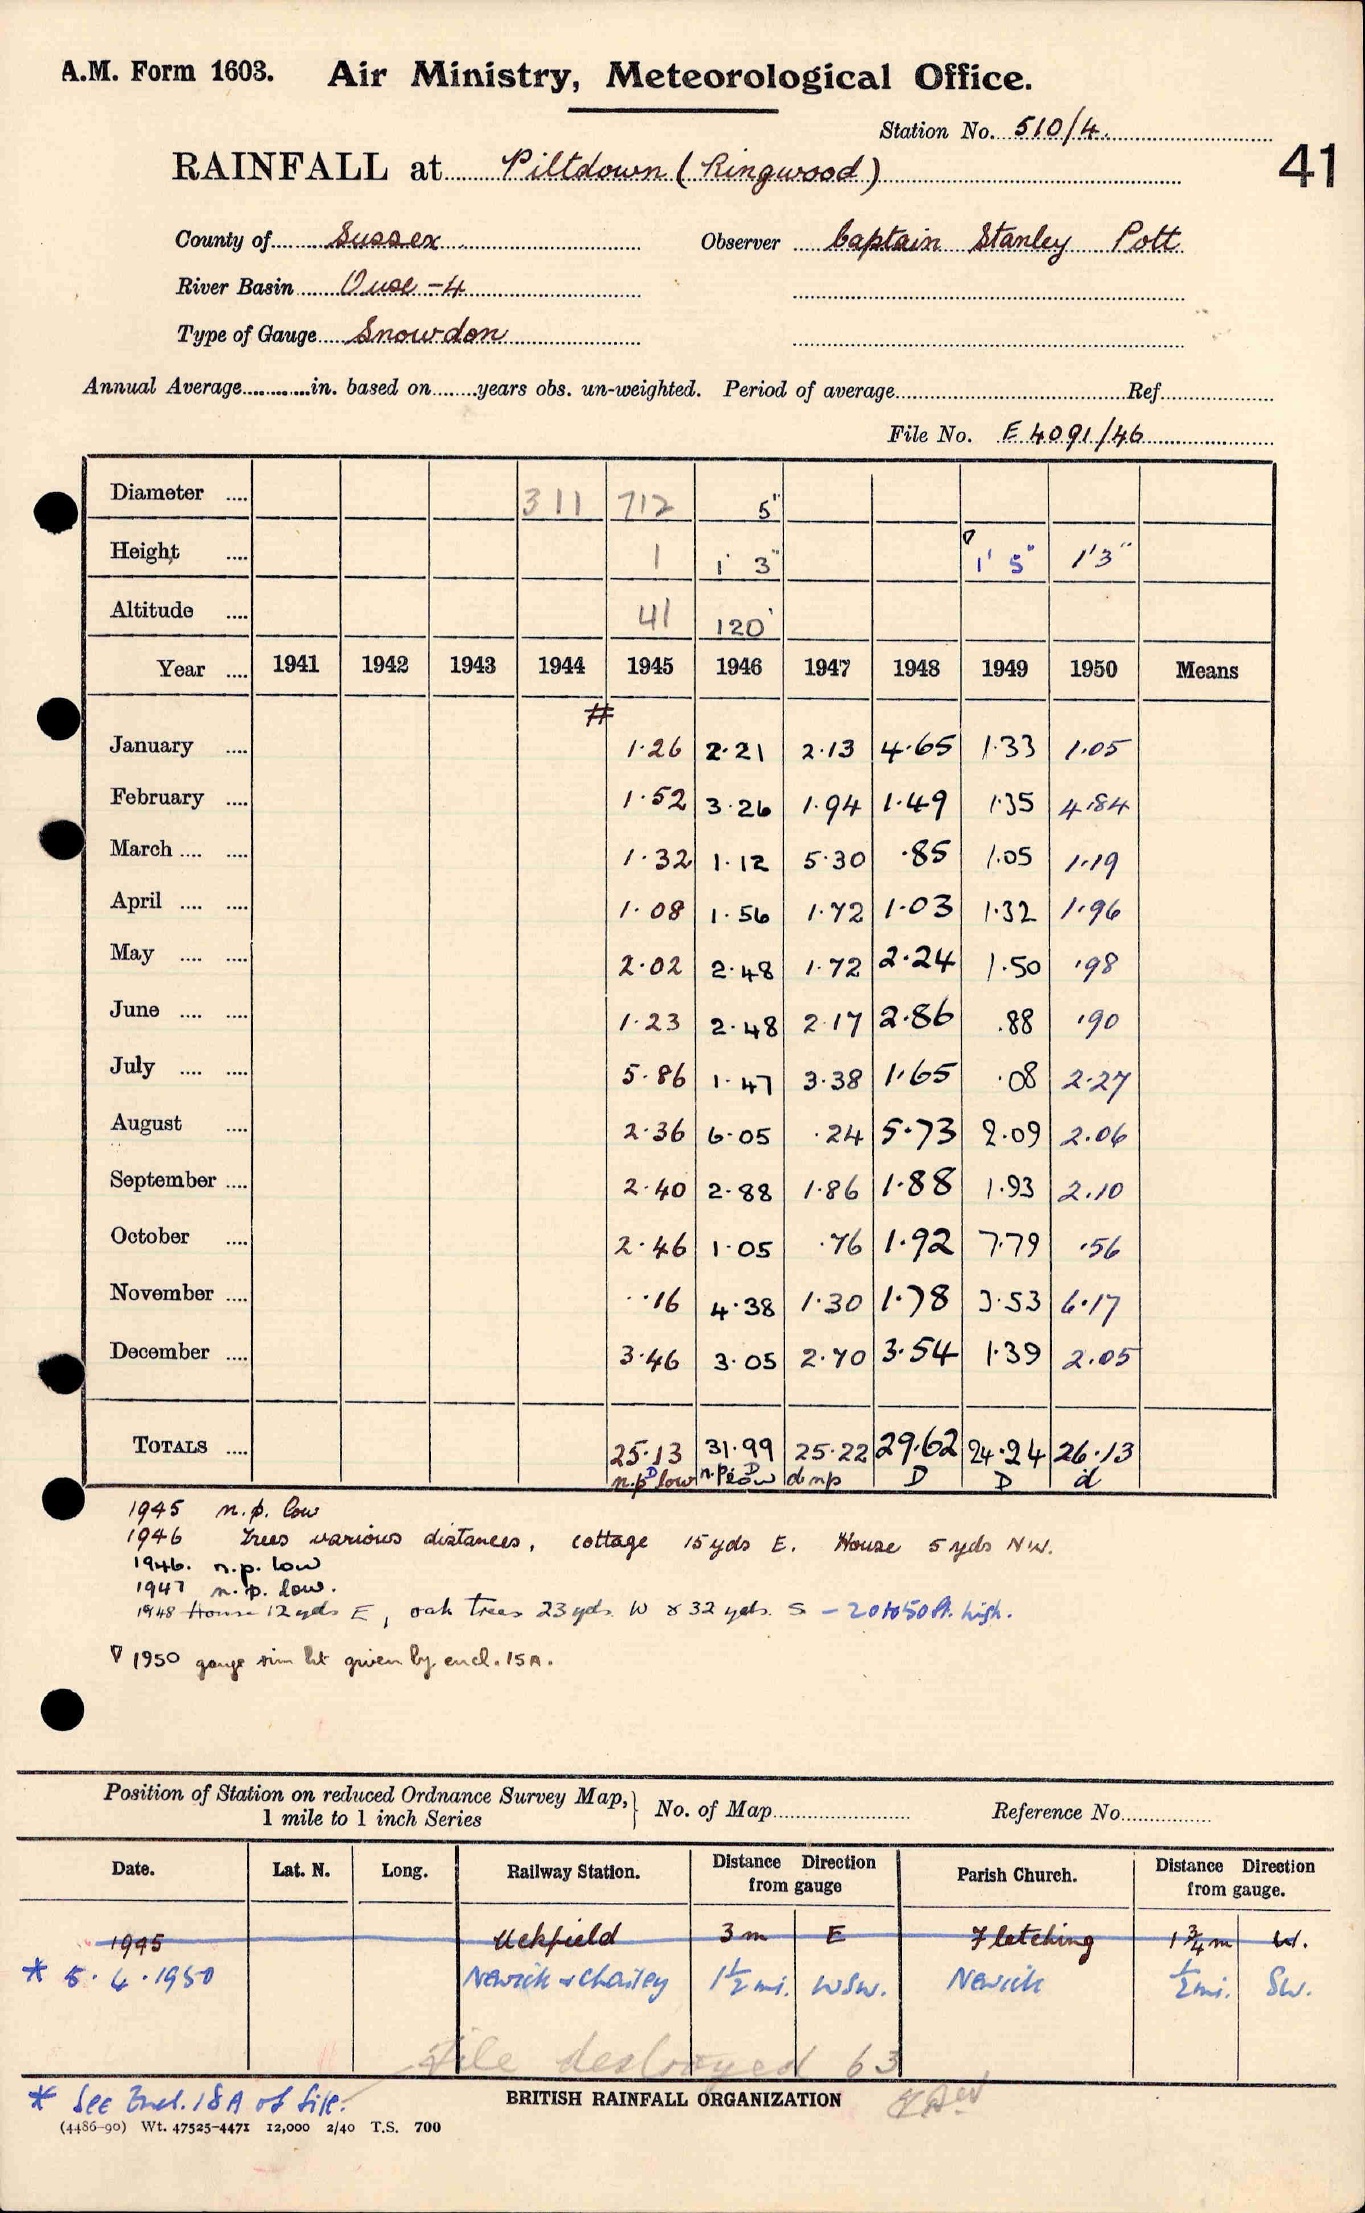 A.M. Form 1603. Air Ministry, Meteorological Office.
Station No. 510/4.
41
RAINFALL at Piltdown (Ringwood)
County of Sussex Observer Captain Stanley Pott
River Basin Ouse - 4
Type of Gauge Snowdon
Annual Average in. based on years obs. un-weighted. Period of average Ref
File No. E 4091/46
Diameter .... 311 712 5"
Height .... 1 1' 3" ∇ 1' 5" 1'3"
Altitude .... 41 120'
Year .... 1941 1942 1943 1944 1945 1946 1947 1948 1949 1950 Means
#
January .... 1.26 2.21 2.13 4.65 1.33 1.05
February .... 1.52 3.26 1.94 1.49 1.35 4.84
March .... .... 1.32 1.12 5.30 .85 1.05 1.19
April .... .... 1.08 1.56 1.72 1.03 1.32 1.96
May .... .... 2.02 2.48 1.72 2.24 1.50 .98
June .... .... 1.23 2.48 2.17 2.86 .88 .90
July .... .... 5.86 1.47 3.38 1.65 .08 2.27
August .... 2.36 6.05 .24 5.73 2.09 2.06
September .... 2.40 2.88 1.86 1.88 1.93 2.10
October .... 2.46 1.05 .76 1.92 7.79 .56
November .... .16 4.38 1.30 1.78 3.53 6.17
December .... 3.46 3.05 2.70 3.54 1.39 2.05
TOTALS .... 25.13 31.99 25.22 29.62 24.24 26.13
n.p D low n.p. D low d n p D D d
1945 n.p. low
1946 Trees various distances, cottage 15 yds E. House 5 yds NW.
1946. n.p. low
1947 n.p. low.
1948 House 12 yds E, oak trees 23 yds. W & 32 yds. S - 20 to 50 ft. high.
∇ 1950 gauge rim ht given by encl. 15A.
Position of Station on reduced Ordnance Survey Map, 1 mile to 1 inch Series } No. of Map Reference No.
Date. Lat. N. Long. Railway Station. Distance Direction from gauge Parish Church. Distance Direction from gauge.
1945 Uckfield 3 m E Fletching 1 3/4 m W.
* 5.4.1950 Newick & Chailey 1 1/2 mi. WSW. Newick 1/2 mi. SW.
File destroyed 63
* See Encl. 18A of file.
BRITISH RAINFALL ORGANIZATION
(4486-90) Wt. 47525-4471 12,000 2/40 T.S. 700